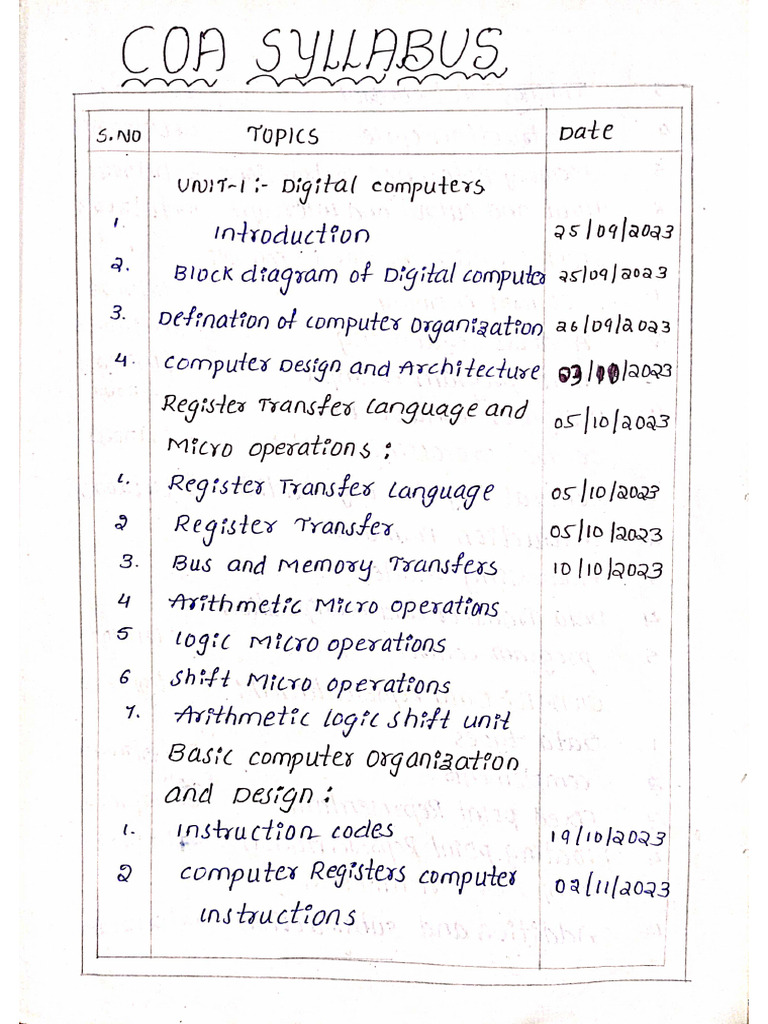 COA SYLLABUS
S.NO TOPICS Date
UNIT-1 :- Digital computers
1. Introduction 25/09/2023
2. Block diagram of Digital computer 25/09/2023
3. Defination of computer Organization 26/09/2023
4. computer Design and Architecture 03/10/2023
Register Transfer Language and 05/10/2023
Micro operations :
1. Register Transfer Language 05/10/2023
2 Register Transfer 05/10/2023
3. Bus and Memory Transfers 10/10/2023
4 Arithmetic Micro operations
5 Logic Micro operations
6 Shift Micro operations
7. Arithmetic logic shift unit
Basic computer Organization
and Design :
1. Instruction codes 19/10/2023
2 computer Registers computer 02/11/2023
instructions